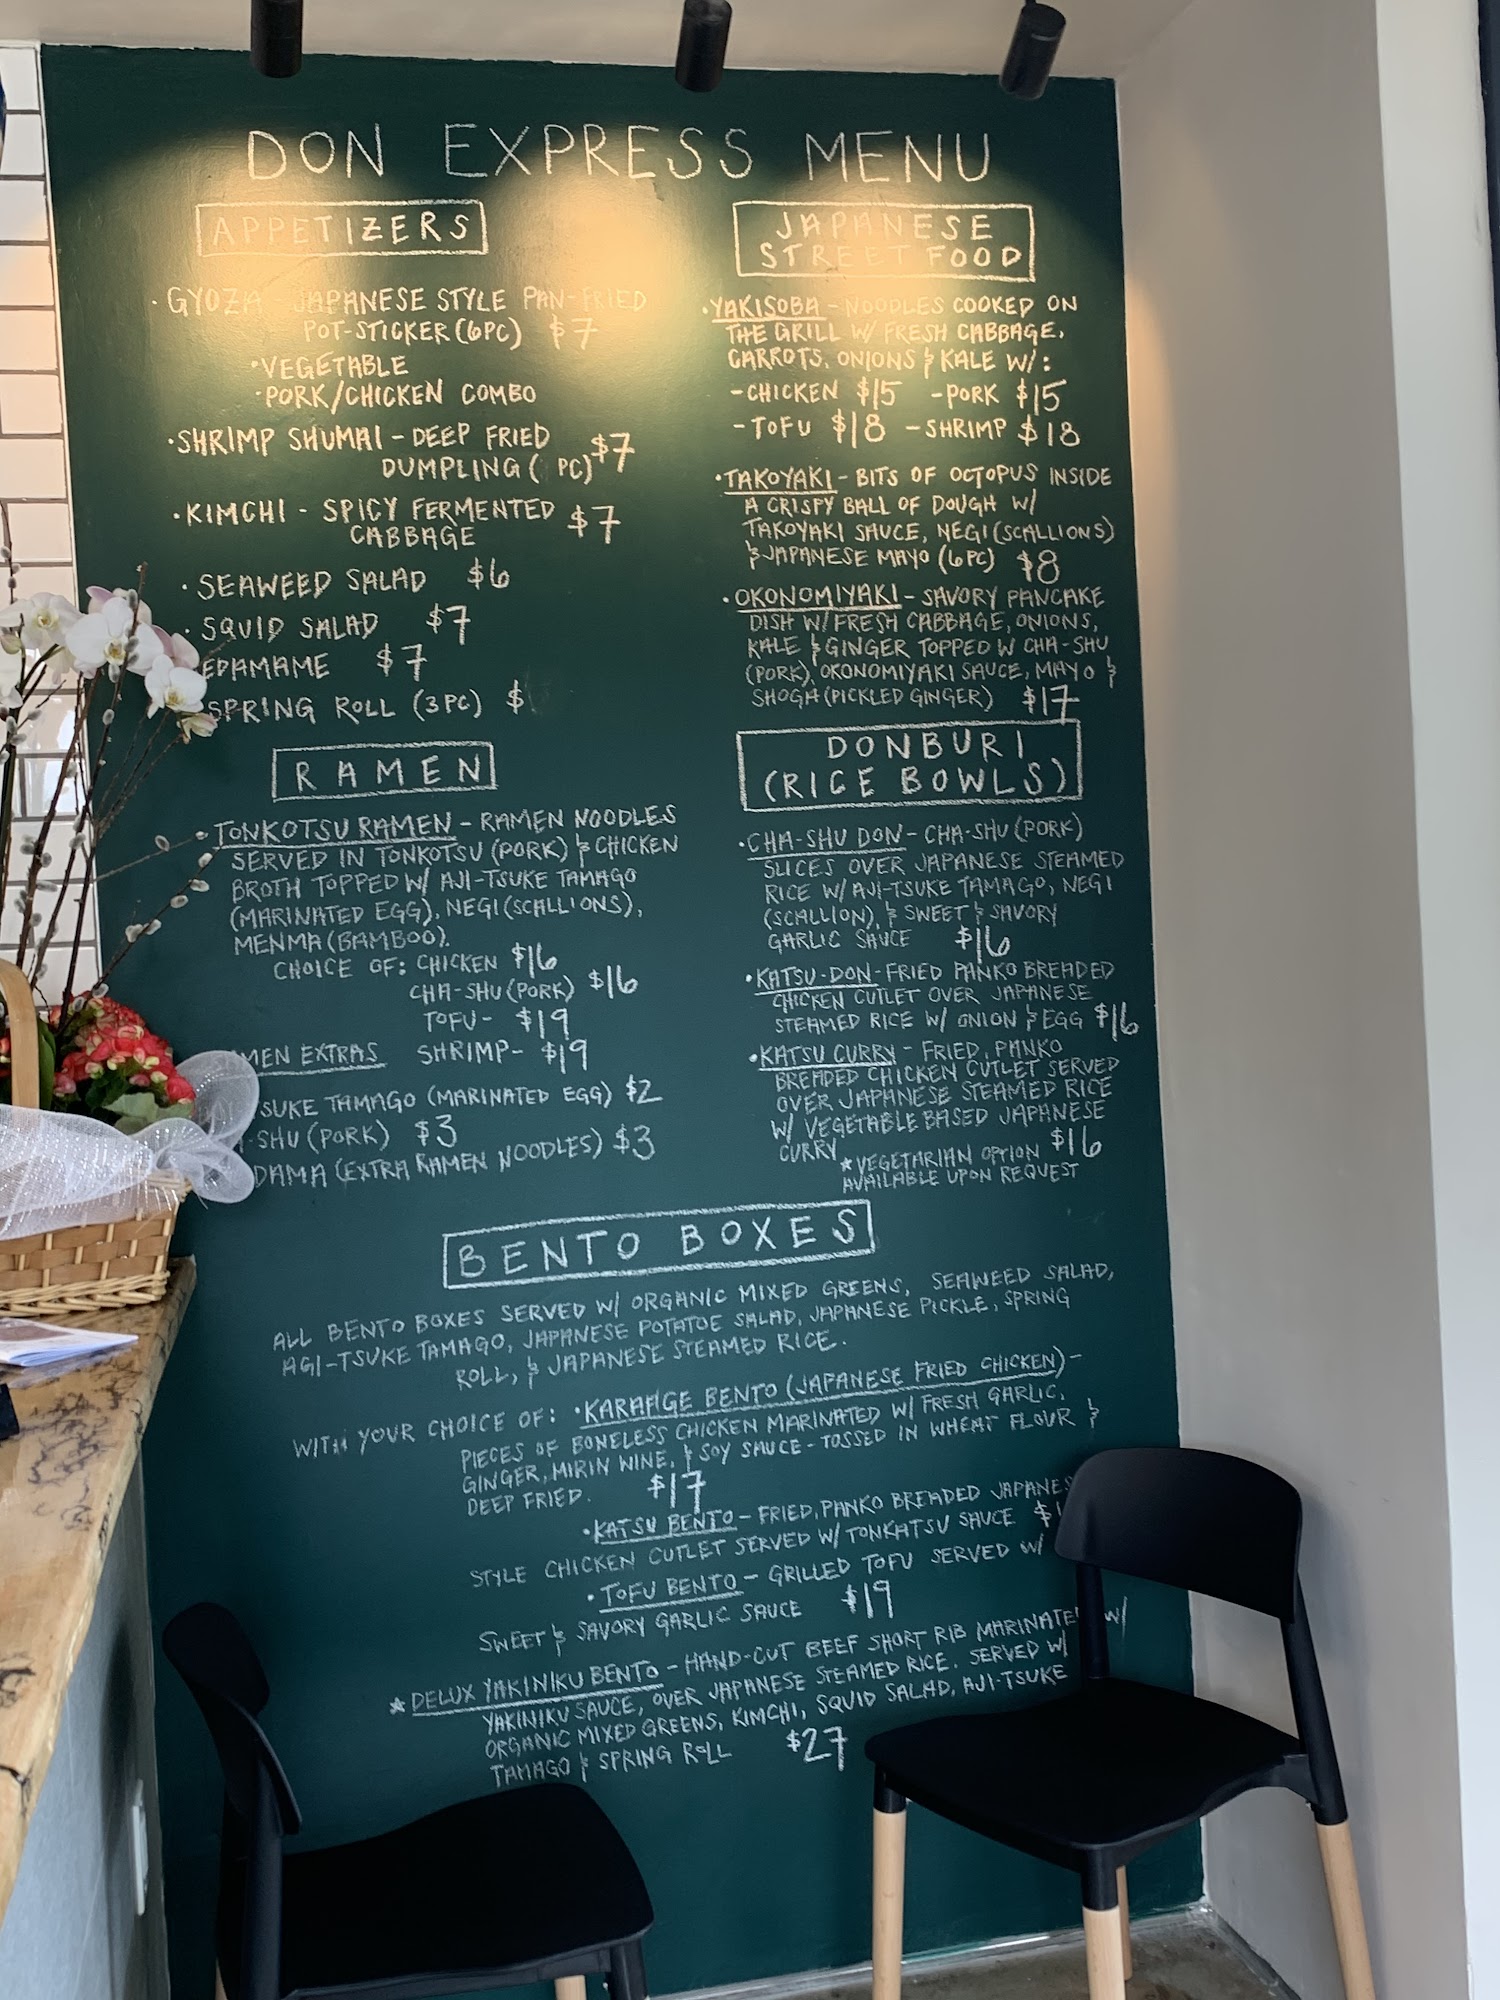 DON EXPRESS MENU
APPETIZERS
· GYOZA - JAPANESE STYLE PAN-FRIED
POT-STICKER (6PC) $7
·VEGETABLE
·PORK/CHICKEN COMBO
·SHRIMP SHUMAI - DEEP FRIED
DUMPLING ( PC) $7
·KIMCHI - SPICY FERMENTED
CABBAGE $7
·SEAWEED SALAD $6
·SQUID SALAD $7
EDAMAME $7
SPRING ROLL (3PC) $
RAMEN
·TONKOTSU RAMEN - RAMEN NOODLES
SERVED IN TONKOTSU (PORK) & CHICKEN
BROTH TOPPED W/ AJI-TSUKE TAMAGO
(MARINATED EGG), NEGI (SCALLIONS),
MENMA (BAMBOO).
CHOICE OF: CHICKEN $16
CHA-SHU (PORK) $16
TOFU- $19
MEN EXTRAS SHRIMP- $19
SUKE TAMAGO (MARINATED EGG) $2
-SHU (PORK) $3
DAMA (EXTRA RAMEN NOODLES) $3
JAPANESE
STREET FOOD
·YAKISOBA - NOODLES COOKED ON
THE GRILL W/ FRESH CABBAGE,
CARROTS, ONIONS & KALE W/:
-CHICKEN $15 -PORK $15
-TOFU $18 -SHRIMP $18
·TAKOYAKI - BITS OF OCTOPUS INSIDE
A CRISPY BALL OF DOUGH W/
TAKOYAKI SAUCE, NEGI (SCALLIONS)
& JAPANESE MAYO (6PC) $8
·OKONOMIYAKI - SAVORY PANCAKE
DISH W/ FRESH CABBAGE, ONIONS,
KALE & GINGER TOPPED W CHA-SHU
(PORK), OKONOMIYAKI SAUCE, MAYO &
SHOGA (PICKLED GINGER) $17
DONBURI
(RICE BOWLS)
·CHA-SHU DON - CHA-SHU (PORK)
SLICES OVER JAPANESE STEAMED
RICE W/ AJI-TSUKE TAMAGO, NEGI
(SCALLION), & SWEET & SAVORY
GARLIC SAUCE $16
·KATSU-DON - FRIED PANKO BREADED
CHICKEN CUTLET OVER JAPANESE
STEAMED RICE W/ ONION & EGG $16
·KATSU CURRY - FRIED, PANKO
BREADED CHICKEN CUTLET SERVED
OVER JAPANESE STEAMED RICE
W/ VEGETABLE BASED JAPANESE
CURRY $16
*VEGETARIAN OPTION
AVAILABLE UPON REQUEST
BENTO BOXES
ALL BENTO BOXES SERVED W/ ORGANIC MIXED GREENS, SEAWEED SALAD,
AGI-TSUKE TAMAGO, JAPANESE POTATOE SALAD, JAPANESE PICKLE, SPRING
ROLL, & JAPANESE STEAMED RICE.
WITH YOUR CHOICE OF: ·KARAAGE BENTO (JAPANESE FRIED CHICKEN) -
PIECES OF BONELESS CHICKEN MARINATED W/ FRESH GARLIC,
GINGER, MIRIN WINE, & SOY SAUCE - TOSSED IN WHEAT FLOUR &
DEEP FRIED. $17
·KATSU BENTO - FRIED, PANKO BREADED JAPANES
STYLE CHICKEN CUTLET SERVED W/ TONKATSU SAUCE $
·TOFU BENTO - GRILLED TOFU SERVED W/
SWEET & SAVORY GARLIC SAUCE $19
* DELUX YAKINIKU BENTO - HAND-CUT BEEF SHORT RIB MARINATE W/
YAKINIKU SAUCE, OVER JAPANESE STEAMED RICE. SERVED W/
ORGANIC MIXED GREENS, KIMCHI, SQUID SALAD, AJI-TSUKE
TAMAGO & SPRING ROLL $27